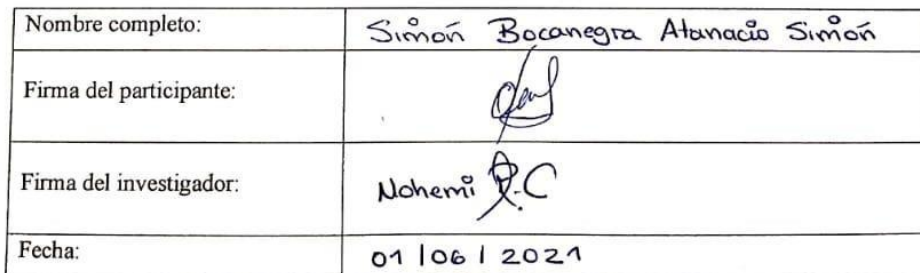 Nombre completo: Simón Bocanegra Atanacio Simón
Firma del participante:
Firma del investigador: Nohemi R.C
Fecha: 01/06/2021